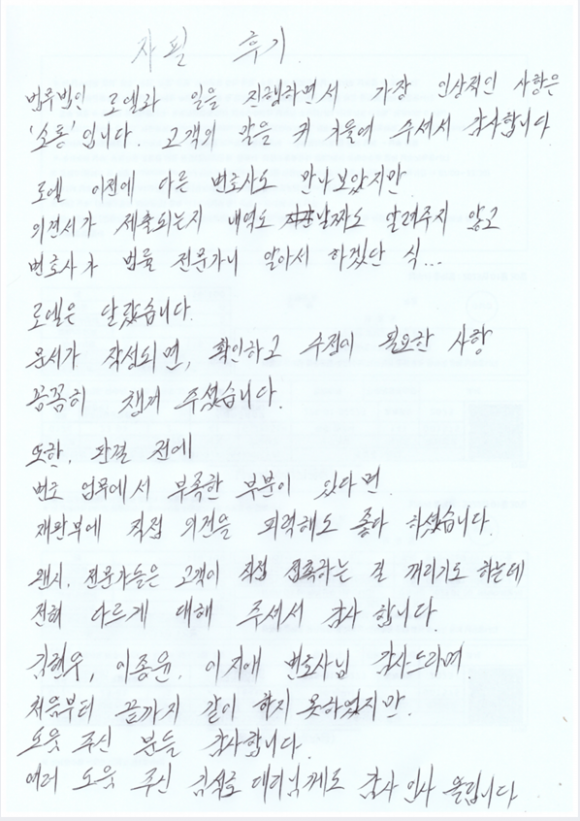 자필 후기.
법무법인 로엘과 일을 진행하면서 가장 인상적인 사항은
'소통'입니다. 고객의 말을 귀 기울여 주셔서 감사합니다
로엘 이전에 다른 변호사도 만나보았지만
의견서가 제출되는지 내역도 날짜도 알려주지 않고
변호사가 법률 전문가니 알아서 하겠단 식...
로엘은 달랐습니다.
문서가 작성되면, 확인하고 수정이 필요한 사항
꼼꼼히 챙겨 주셨습니다.
또한, 판결 전에
변호 업무에서 부족한 부분이 있다면
재판부에 직접 의견을 피력해도 좋다 하셨습니다.
왠지, 전문가들은 고객이 직접 접촉하는 걸 꺼리기도 하는데
전혀 다르게 대해 주셔서 감사 합니다.
김현우, 이종윤, 이지애 변호사님 감사드리며,
처음부터 끝까지 같이 하지 못하였지만.
도움 주신 분들 감사합니다.
여러 도움 주신 대리님께도 감사 인사 올립니다